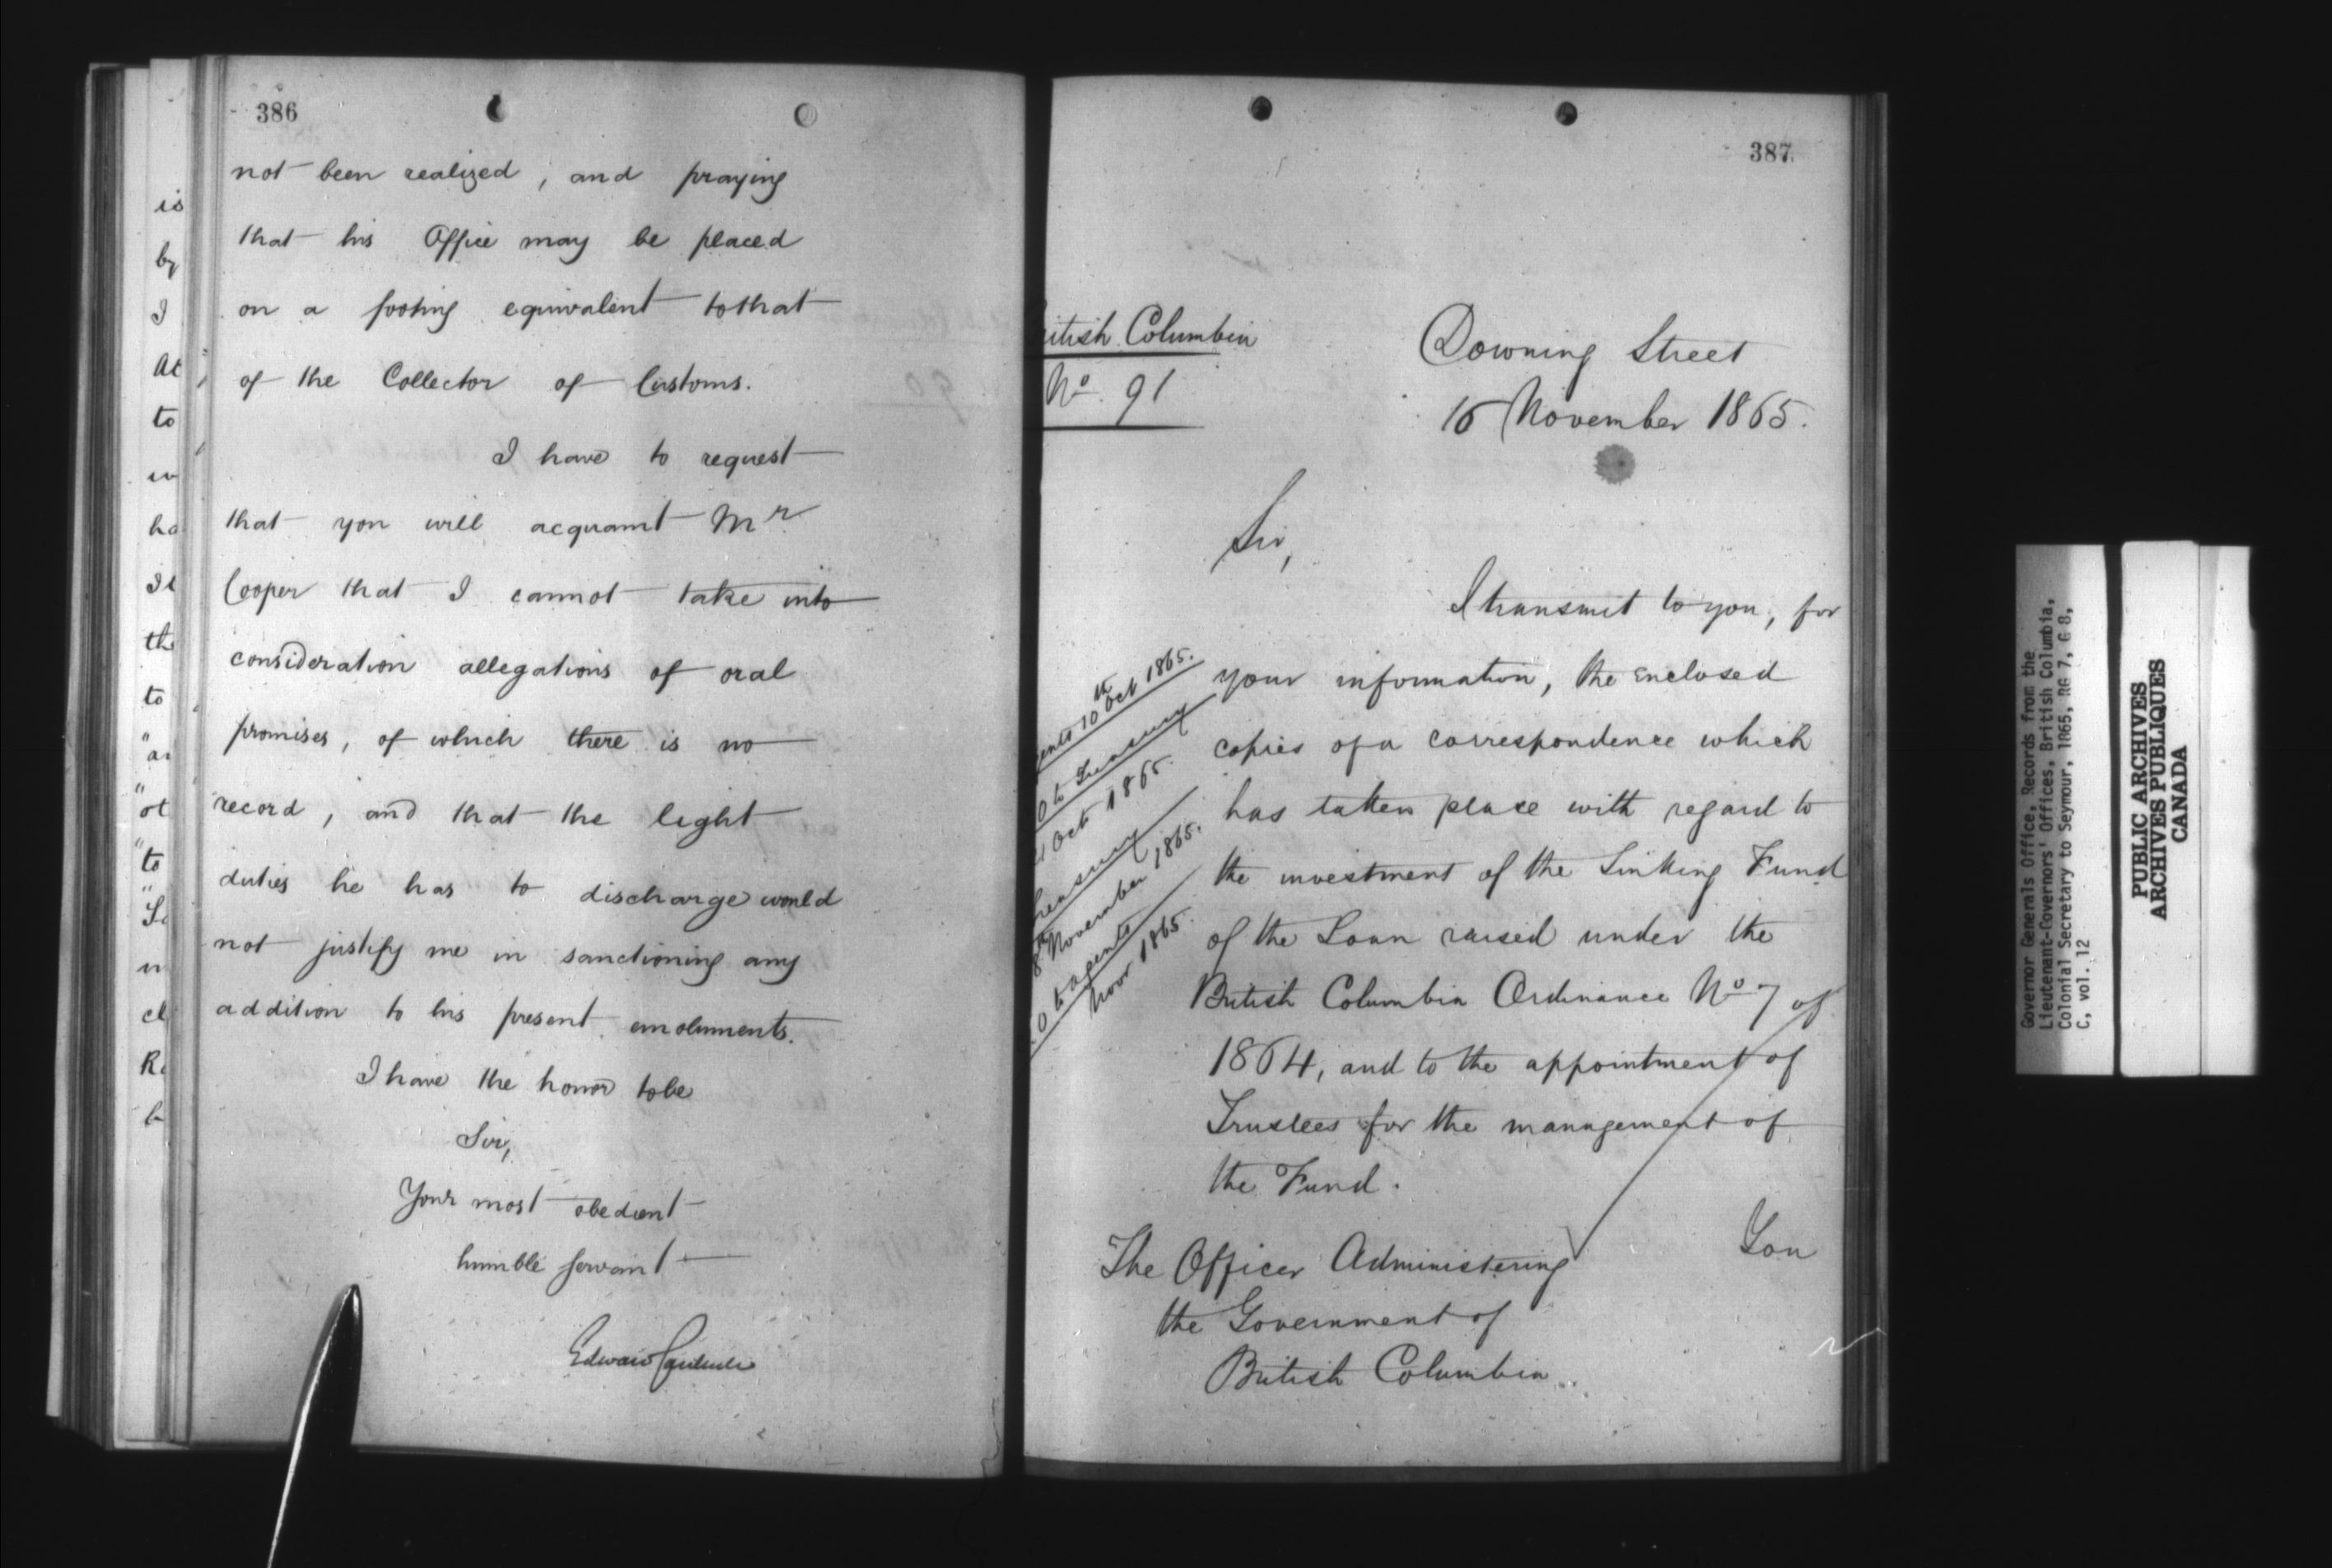 386
not been realized, and praying
that his Office may be placed
on a footing equivalent to that
of the Collector of Customs.
I have to request
that you will acquaint Mr
Cooper that I cannot take into
consideration allegations of oral
promises, of which there is no
record, and that the light
duties he has to discharge would
not justify me in sanctioning any
addition to his present emoluments.
I have the honor to be
Sir,
Your most obedient
humble servant
Edward Cardwell
is
by
I
At
to
ha
th
to
"to
387
itish Columbia
No. 91
Downing Street
16 November 1865.
Sir,
I transmit to you, for
your information, the enclosed
copies of a correspondence which
has taken place with regard to
the investment of the Sinking Fund
of the Loan raised under the
British Columbia Ordinance No 7 of
1864, and to the appointment of
Trustees for the management of
the Fund.
You
ents 10th Oct 1865.
O to Treasury
Oct 1865.
reasury
8th November 1865.
O to agents
Novr 1865.
The Officer Administering
the Government of
British Columbia
Governor Generals Office, Records from the
Lieutenant-Governors' Offices, British Columbia,
Colonial Secretary to Seymour, 1865, RG 7, G 8,
C, vol. 12
PUBLIC ARCHIVES
ARCHIVES PUBLIQUES
CANADA